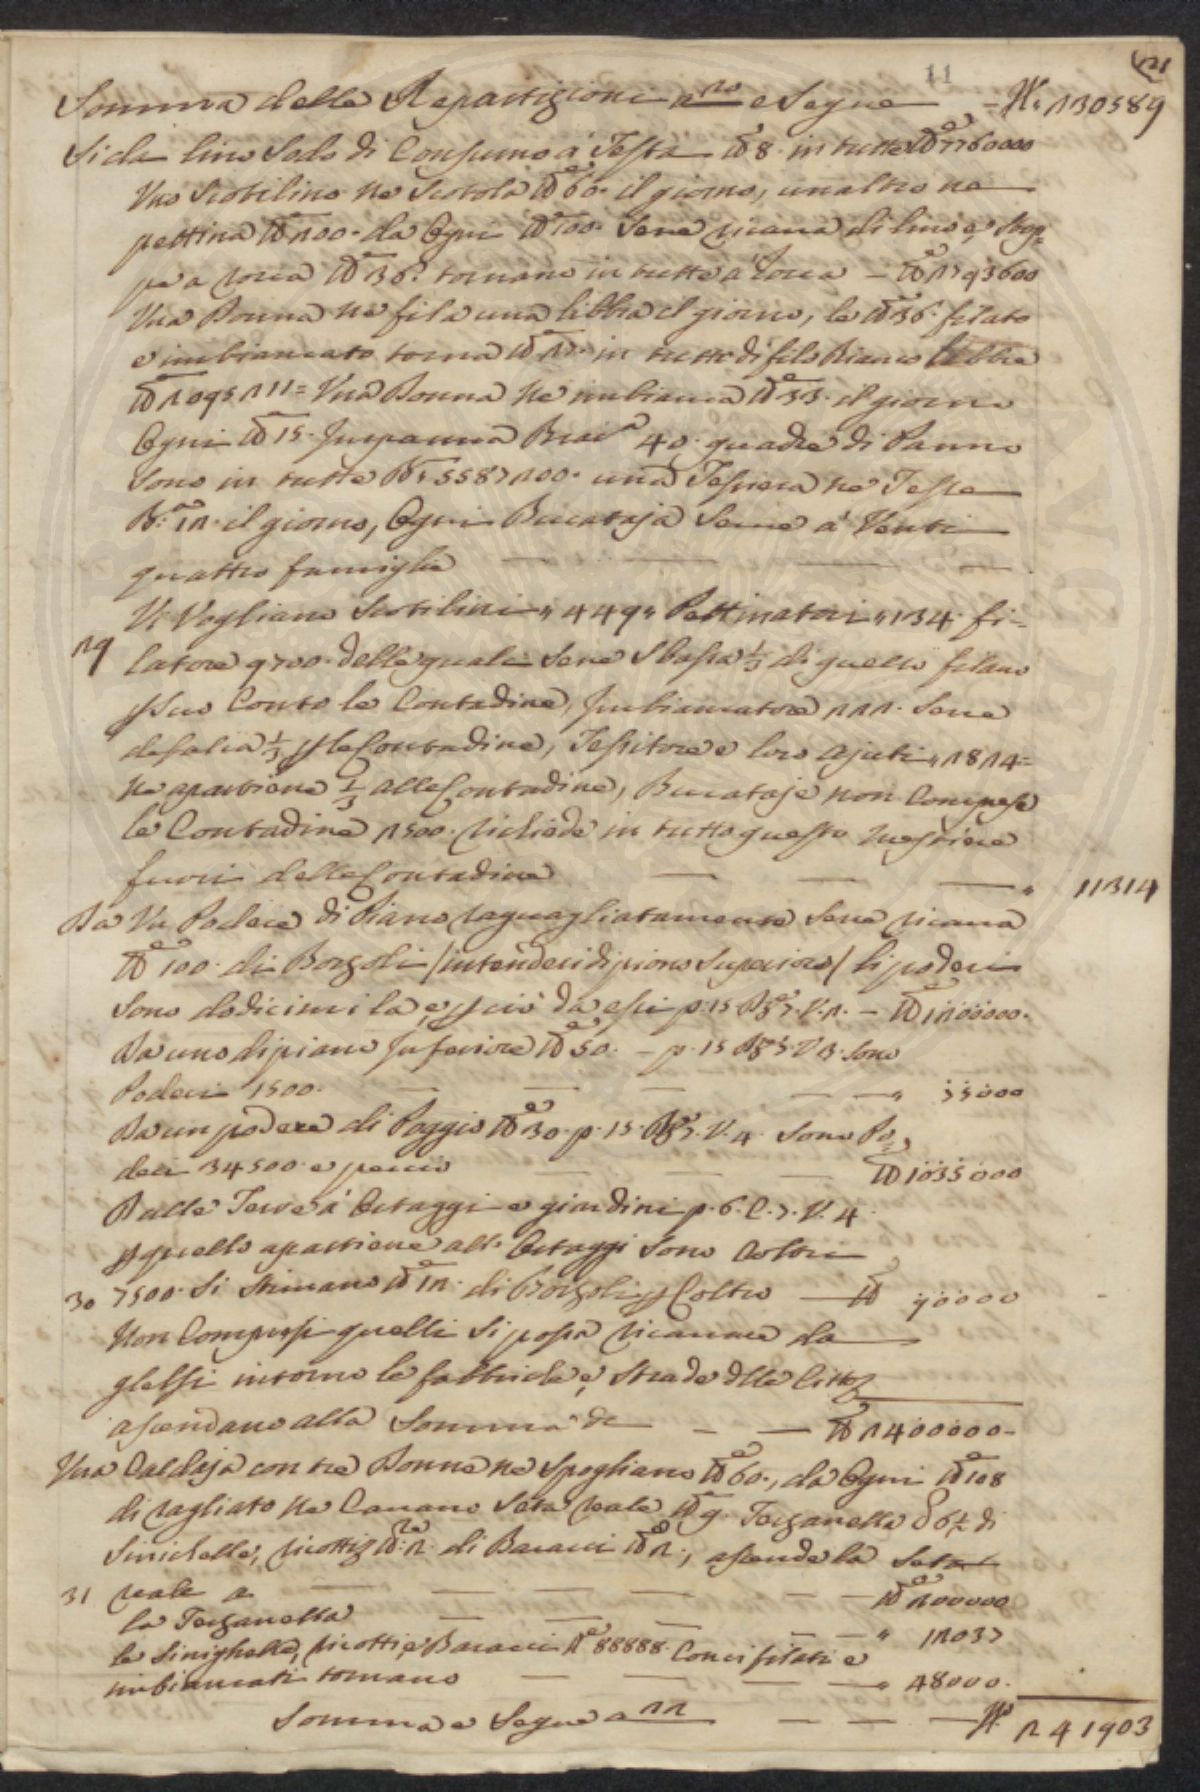 11
Somma delle Repartizioni n.ro e Segue — N.° 130589
Si da lino Sodo di Consumo à Testa ℔ 8. in tutto ℔ 7760000
Uno Scotilino ne Scotola ℔ 60. il giorno, un altro ne
pettina ℔ 100. da Ogni ℔ 100. Sene ricava di lino e, stop=
pa a rocca ℔ 36. tornano in tutto à Rocca — ℔ 2793600
Una Donna ne fila una libbra il giorno, le ℔ 36. filate
e imbiancato torna ℔ in tutto di filo Bianco libbre
Una Donna ne imbianca ℔ 33. il giorno
Ogni ℔ 15. Braa 40. quadre di Panno
sono in tutte Ba 5587200. una Tessiera ne Tesse
Ba 12. il giorno, Ogni Bucataja Serve à Venti
quattro famiglie
Vi Vogliano Scotilini " 449 " Pettinatori " 234. fi=
29 latore 9700. delle quali Sene Sbassa ⅓ di quello filano
p Suo Conto le Contadine, Imbiancatore 222. Sene
defalca ⅓ p le Contadine, Tessitore e loro ajuti " 1814=
ne apartiene ⅓ alle Contadine, Bucataje non Comprese
le Contadine 2500. richiede in tutto questo mestiere
fuori delle Contadine — — — " 11314
Da Un Podere di Piano raguagliatamente Sene ricava
℔ 100. di Bozzoli / intendesi di piano Superiore / li poderi
sono dodicimila, e p ciò da essi p. 15 — ℔ 1200000.
Da uno di piano Inferiore ℔ 50. — p. 15 sono
Poderi 1500. — — — " 75000
Da un podere di Poggio ℔ 30. p. 15. V. 4. sono Po=
deri 34500. e perciò — — ℔ 1035000
Dalle Terre à Ortaggi e giardini p. 6. C. 7. V. 4.
p quello apartiene alli Ortaggi sono Coltri
30 7500. Si stimano ℔ 12. di Bozzoli p Coltro — ℔ 90000
Non Compresi quelli si possa ricavare da
gelsi intorno le fabbriche e, strade dlle Città
ascendano alla Somma di — — ℔ 2400000.
Una Caldaja con tre Donne ne Spogliano ℔ 60., da Ogni ℔ 108
di vagliato ne Cavano Seta reale ℔ 9. Terzanella di
Sinichelle, ricotti ℔ 2. di Baracci ℔ 2., ascende la Seta
31 reale a — — — ℔ 200000
la Terzanella — — — " 12037
le Sinighelle, ricotti, e Baracci ℔ 88888. Conci filati e
imbiancati tornano — — — " 48000.
Somma e Segue a 22 — — — N.° 241903